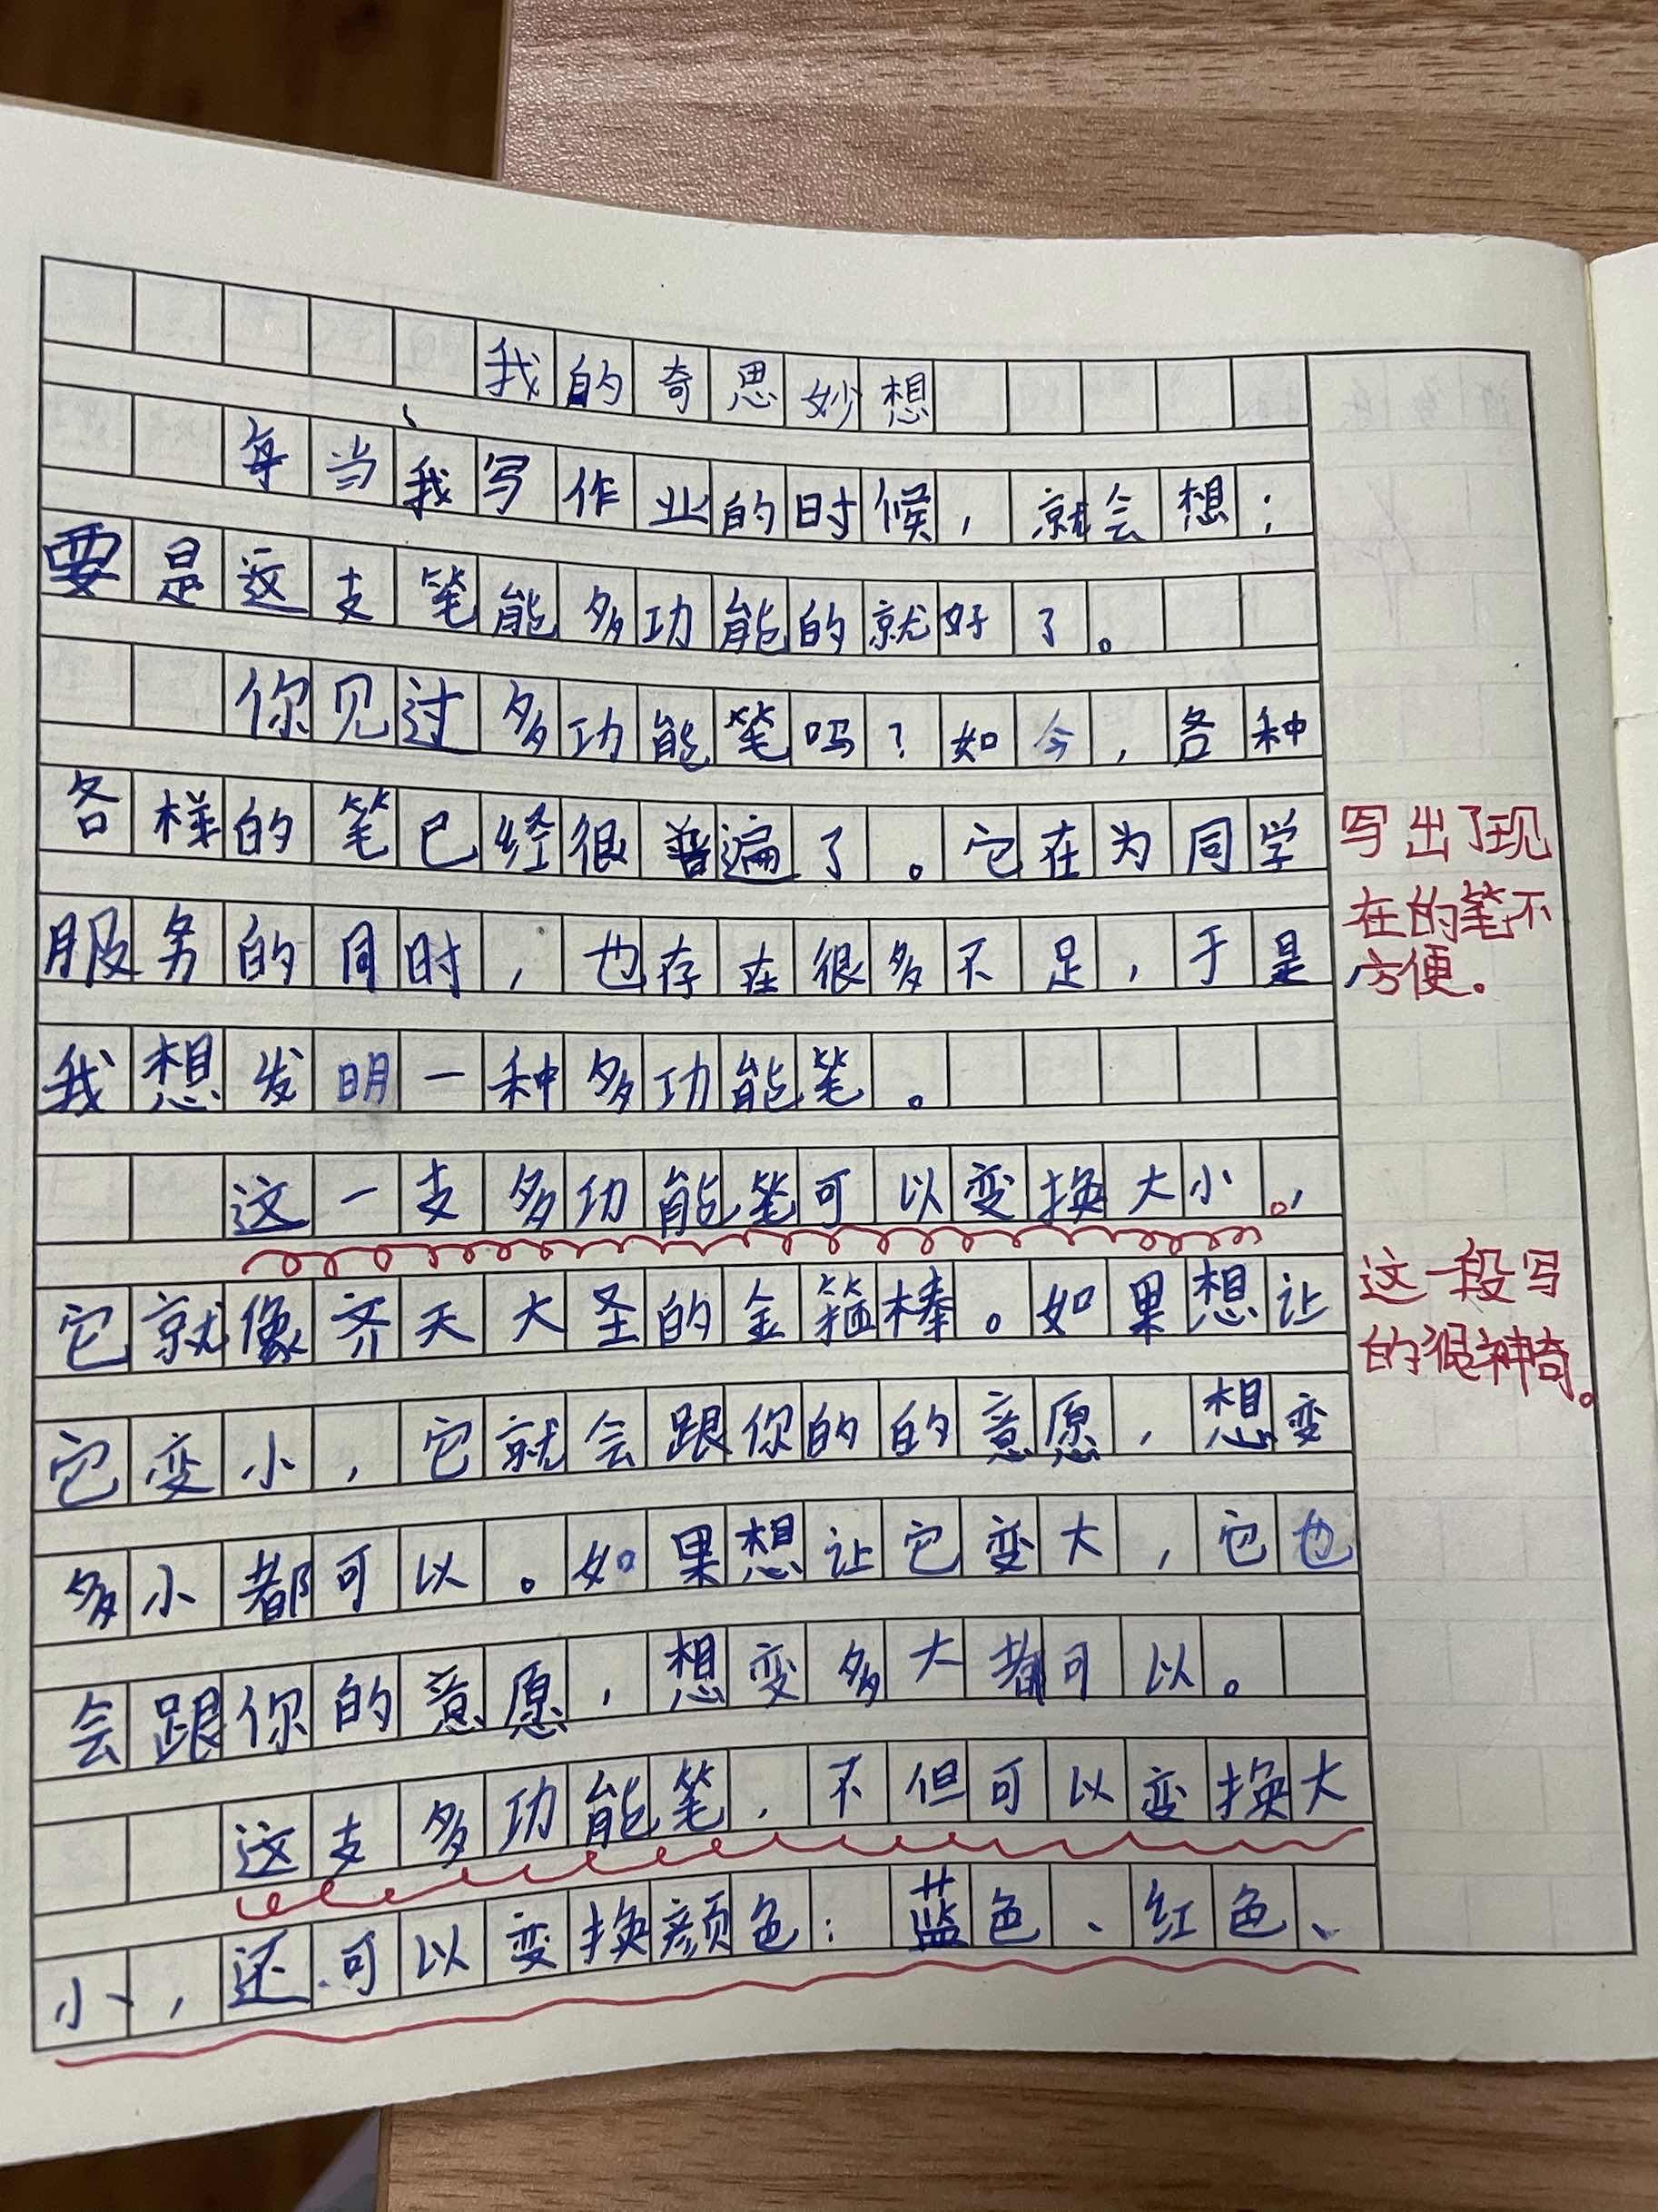 我的奇思妙想
每当我写作业的时候，就会想：
要是这支笔能多功能的就好了。
你见过多功能笔吗？如今，各种
各样的笔已经很普遍了。它在为同学
服务的同时，也存在很多不足，于是
我想发明一种多功能笔。
这一支多功能笔可以变换大小。，
它就像齐天大圣的金箍棒。如果想让
它变小，它就会跟你的的意愿，想变
多小都可以。如果想让它变大，它也
会跟你的意愿，想变多大都可以。
这支多功能笔，不但可以变换大
小，还可以变换颜色：蓝色、红色、
写出了现
在的笔不
方便。
这一段写
的很神奇。